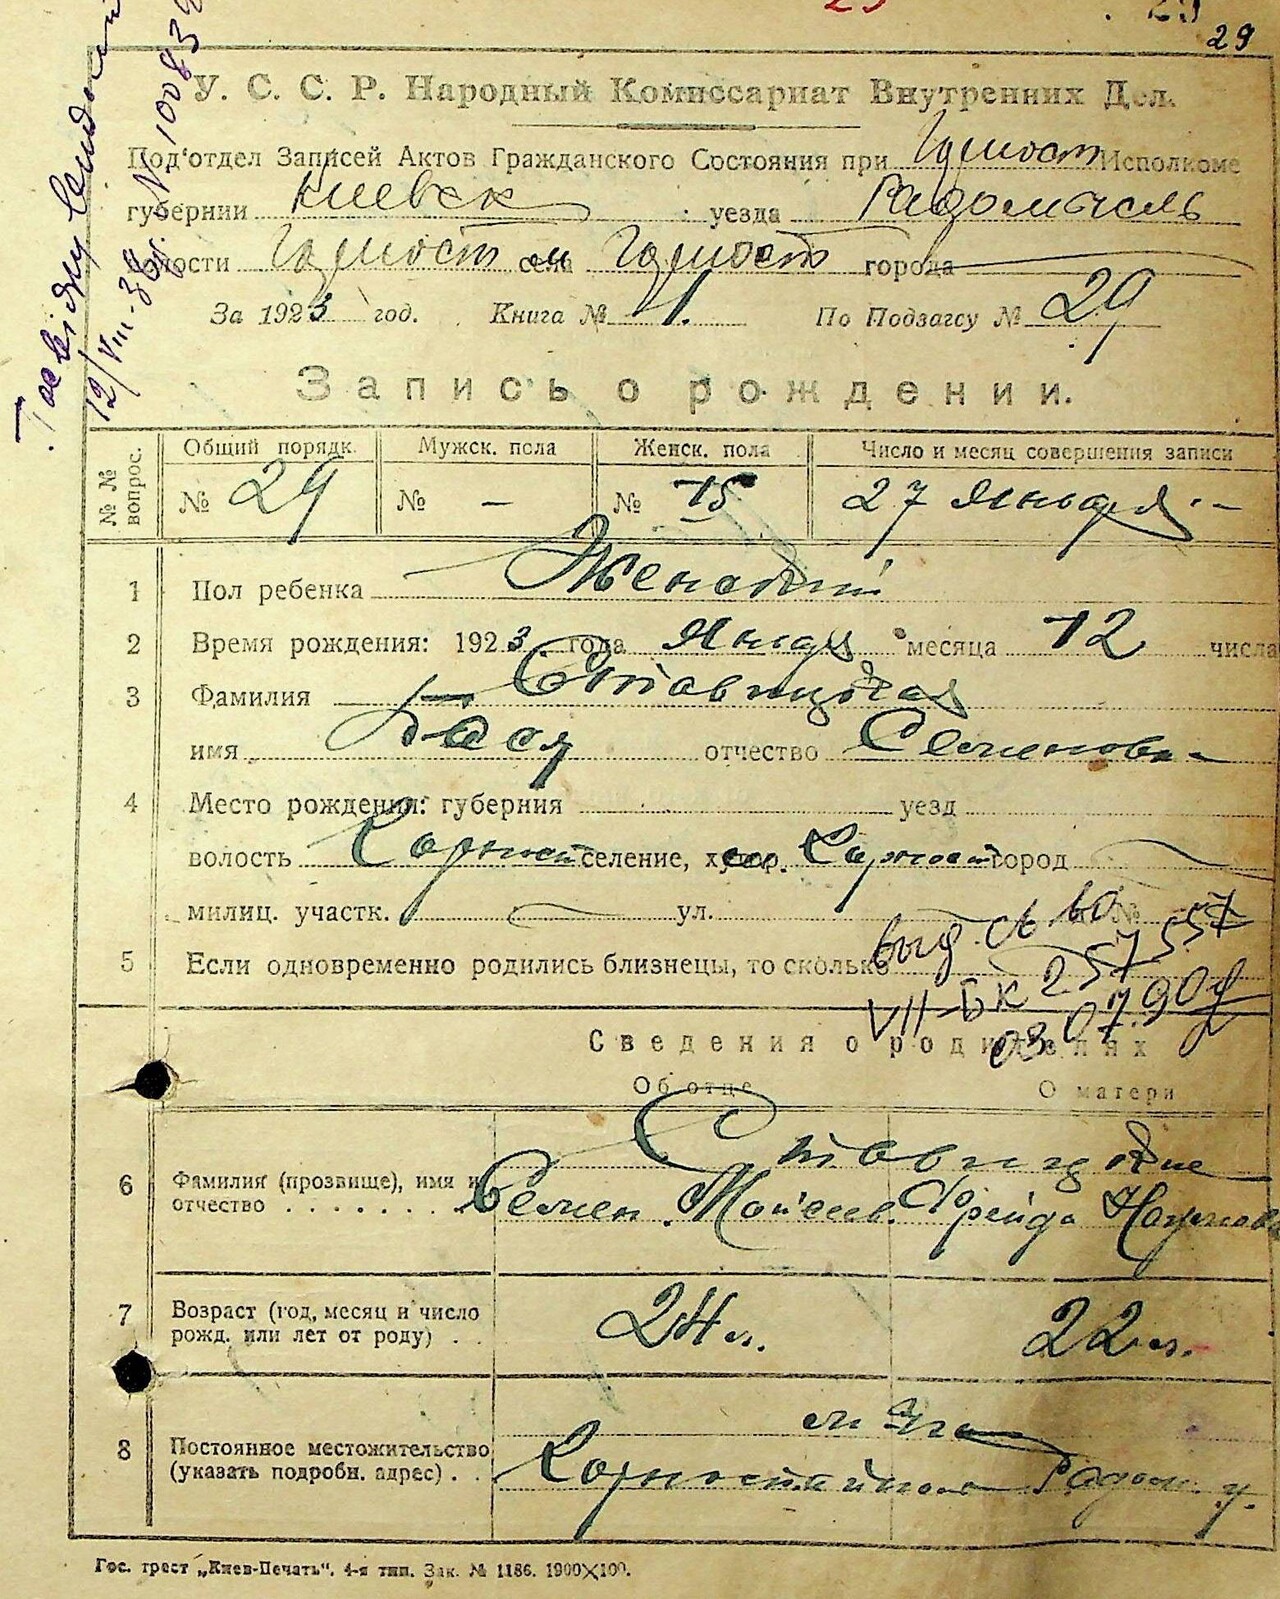 29
У. С. С. Р. Народный Комиссариат Внутренних Дел.
Под'отдел Записей Актов Гражданского Состояния при Горност Исполкоме
губернии Киевск уезда Радомысль
волости Горност села Горност города
За 1923 год. Книга № 1. По Подзагсу № 29
Запись о рождении.
№№ вопрос. Общий порядк. Мужск. пола Женск. пола Число и месяц совершения записи
№ 29 № – № 15 27 Января
1 Пол ребенка Женский
2 Время рождения: 1923 года Января месяца 12 числа
3 Фамилия Ставицкая
имя Бася отчество Семенова
4 Место рождения: губерния уезд
волость Корност селение, хутор. Корност город
милиц. участк. ул. №
5 Если одновременно родились близнецы, то сколько
выд. св во
VII-БК 257557
03.07.90
Сведения о родителях
Об отце О матери
Ставицкие
6 Фамилия (прозвище), имя и отчество Семен Мойсеев. Фрейда Наумова
7 Возраст (год, месяц и число рожд. или лет от роду) 24 л. 22 л.
8 Постоянное местожительство (указать подробн. адрес) Радом. у.
Гос. трест „Киев-Печать". 4-я тип. Зак. № 1186. 1900×100.
12/VIII-38 г. №